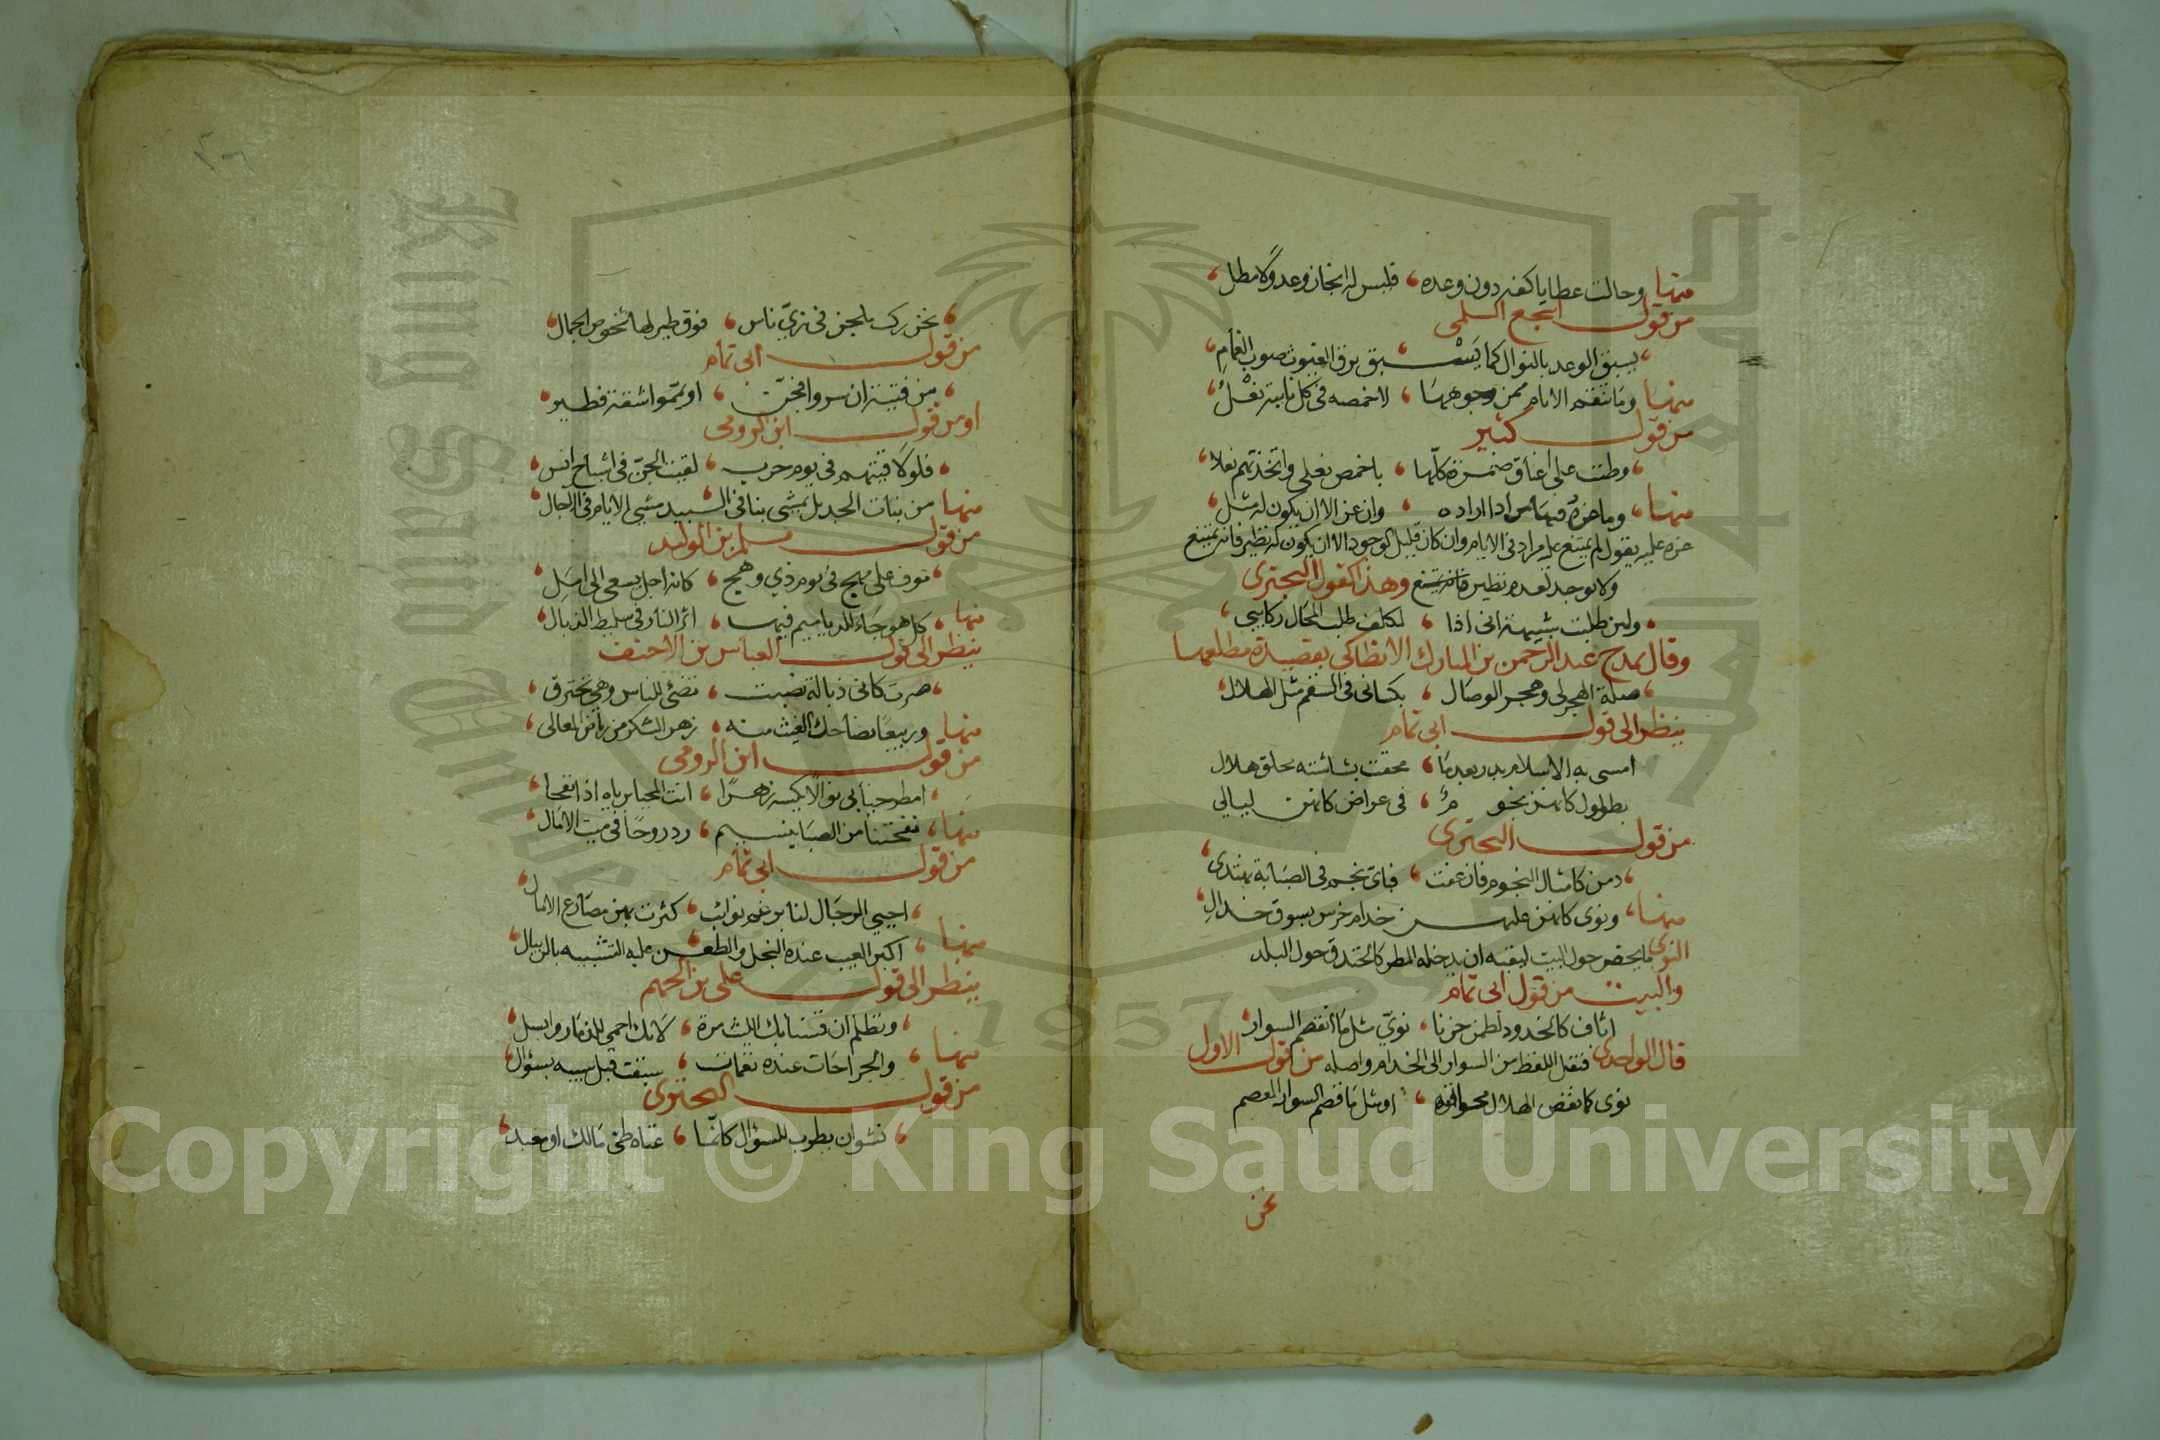 منها وحالت عطايا كفه دون وعده فليس له انجاز وعد ولا مطل
من قول اشجع السلمي
يسبق الوعد بالنوال كما يسبق برق الغيوث صوب الغمام
منها وما تنقم الايام ممن وجوهها لاخمصه في كل نايبة نعل
من قول كثير
وطئت على اعناق ضمرة كلها باخمص نعلي واتخذتهم نعلا
منها وما عزه فيها مراد اراده وان عز الا ان يكون له مثل
عزه عليه يقول لم يمتنع عليه مراد في الايام وان كان قليل الوجود الا ان يكون له نظير فانه يمتنع
ولا يوجد لعدم نظيره فانه يمتنع وهذا كقول البحتري
ولين طلبت شبيهه اني اذا لمكلف طلب المحال ركابي
وقال يمدح عبد الرحمن بن المبارك الانطاكي بقصيدة مطلعها
صلة الهجر لي وهجر الوصال نكساني في السقم مثل الهلال
ينظر الى قول ابي تمام
امسى به الاسلام بدرا بعدما محقت بشاشته محاق هلال
بطلول كانهن نجوم في عراص كانهن ليالي
من قول البحتري
دمن كامثال النجوم فان عفت فباي نجم في الصبابة نهتدي
منها ونوى كانهن عليهن خدام خرس بسوق خدال
النوى ما يحفر حول البيت ليقيه ان يدخله المطر كالخندق حول البلد
والبيت من قول ابي تمام
اثاف كالخدود لطمن حزنا نوى مثل ما انقصم السوار
قال الواحدي فنقل اللفظ من السوار الى الخدام واصله من قول الاول
نوى كما نقص الهلال محاقه او مثل ما فصم السوار المعصم
نحن
نحن ركب ملجن في زي ناس فوق طير لها شخوص الجمال
من قول ابي تمام
من فتية ان سروا فجن او يمموا شقة فطير
او من قول ابن الرومي
فلو لاقيتهم في يوم حرب لقيت الجن في اشباح انس
منها من بنات الجديل تمشي بنا في البيد مشي الايام في الآجال
من قول مسلم بن الوليد
موف على مهج في يوم ذي وهج كانه اجل يسعى الى امل
منها كل هوجاء للدياميم فيها اثر النار في سليط الذبال
ينظر الى قول العباس بن الاحنف
صرت كاني ذبالة نصبت تضئ للناس وهي تحترق
منها وربيعا يضاحك الغيث منه زهر الشكر من رياض المعالي
من قول ابن الرومي
منها نفحتنا من الصبا بنسيم رد روحا في ميت الآمال
من قول ابي تمام
كثرت بهن مصارع الامال
منها اكبر العيب عنده البخل والطعن عليه التشبيه بالريبال
ينظر الى قول علي بن الجهم
ونظلم ان قسنا بك الليث مرة لانك احمى للذمار وابسل
منها والجراحات عنده نغمات سبقت قبل سيبه بسؤال
من قول البحتري
نشوان يطرب للسؤال كانما غناه مالك طيئ او معبد
Copyright © King Saud University
King Saud University
1957